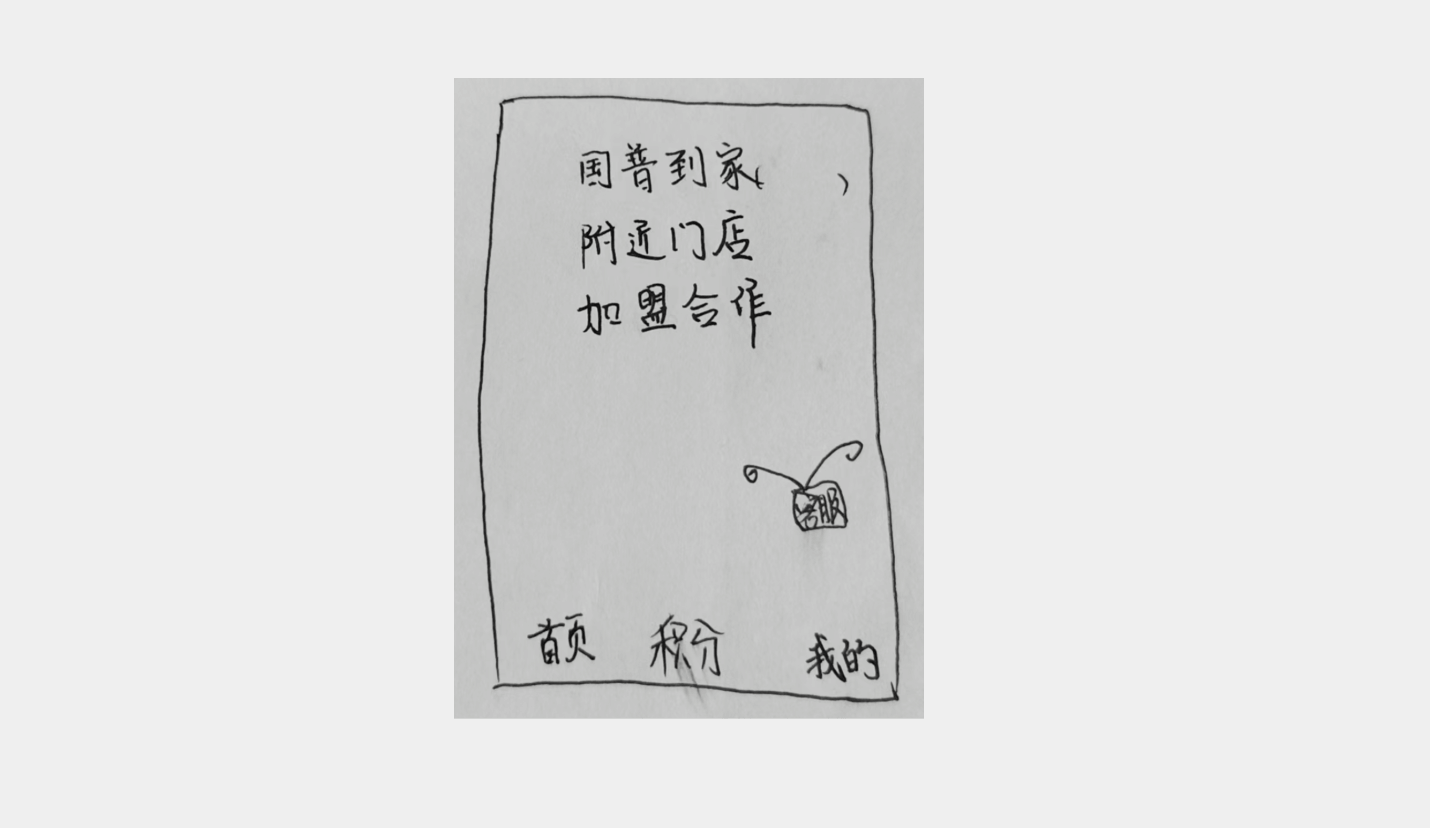 国普到家（　　）
附近门店
加盟合作
客服
首页 积分 我的